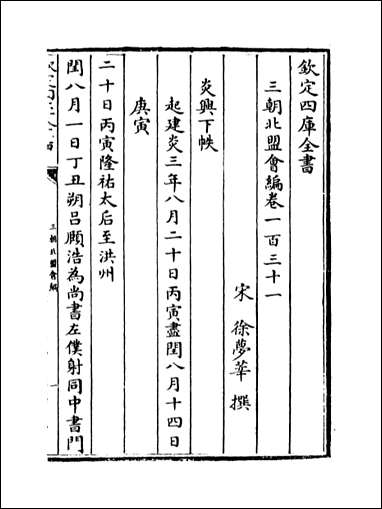 欽定四庫全書
三朝北盟會編卷一百三十一
宋 徐夢莘 撰
炎興下帙
起建炎三年八月二十日丙寅盡閏八月十四日
庚寅
二十日丙寅隆祐太后至洪州
閏八月一日丁丑朔吕頤浩為尚書左僕射同中書門
三朝北盟會編